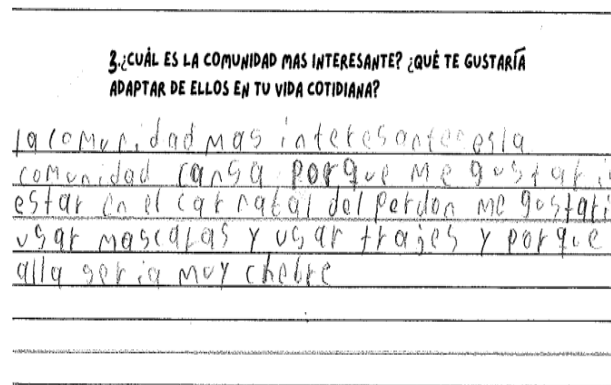 3.¿CUÁL ES LA COMUNIDAD MAS INTERESANTE? ¿QUÉ TE GUSTARÍA
ADAPTAR DE ELLOS EN TU VIDA COTIDIANA?
la comunidad mas interesante es la
comunidad cansa porque me gustari
estar en el carnatal del perdon me gustari
usar mascaras y usar trajes y porque
alla seria muy chebre